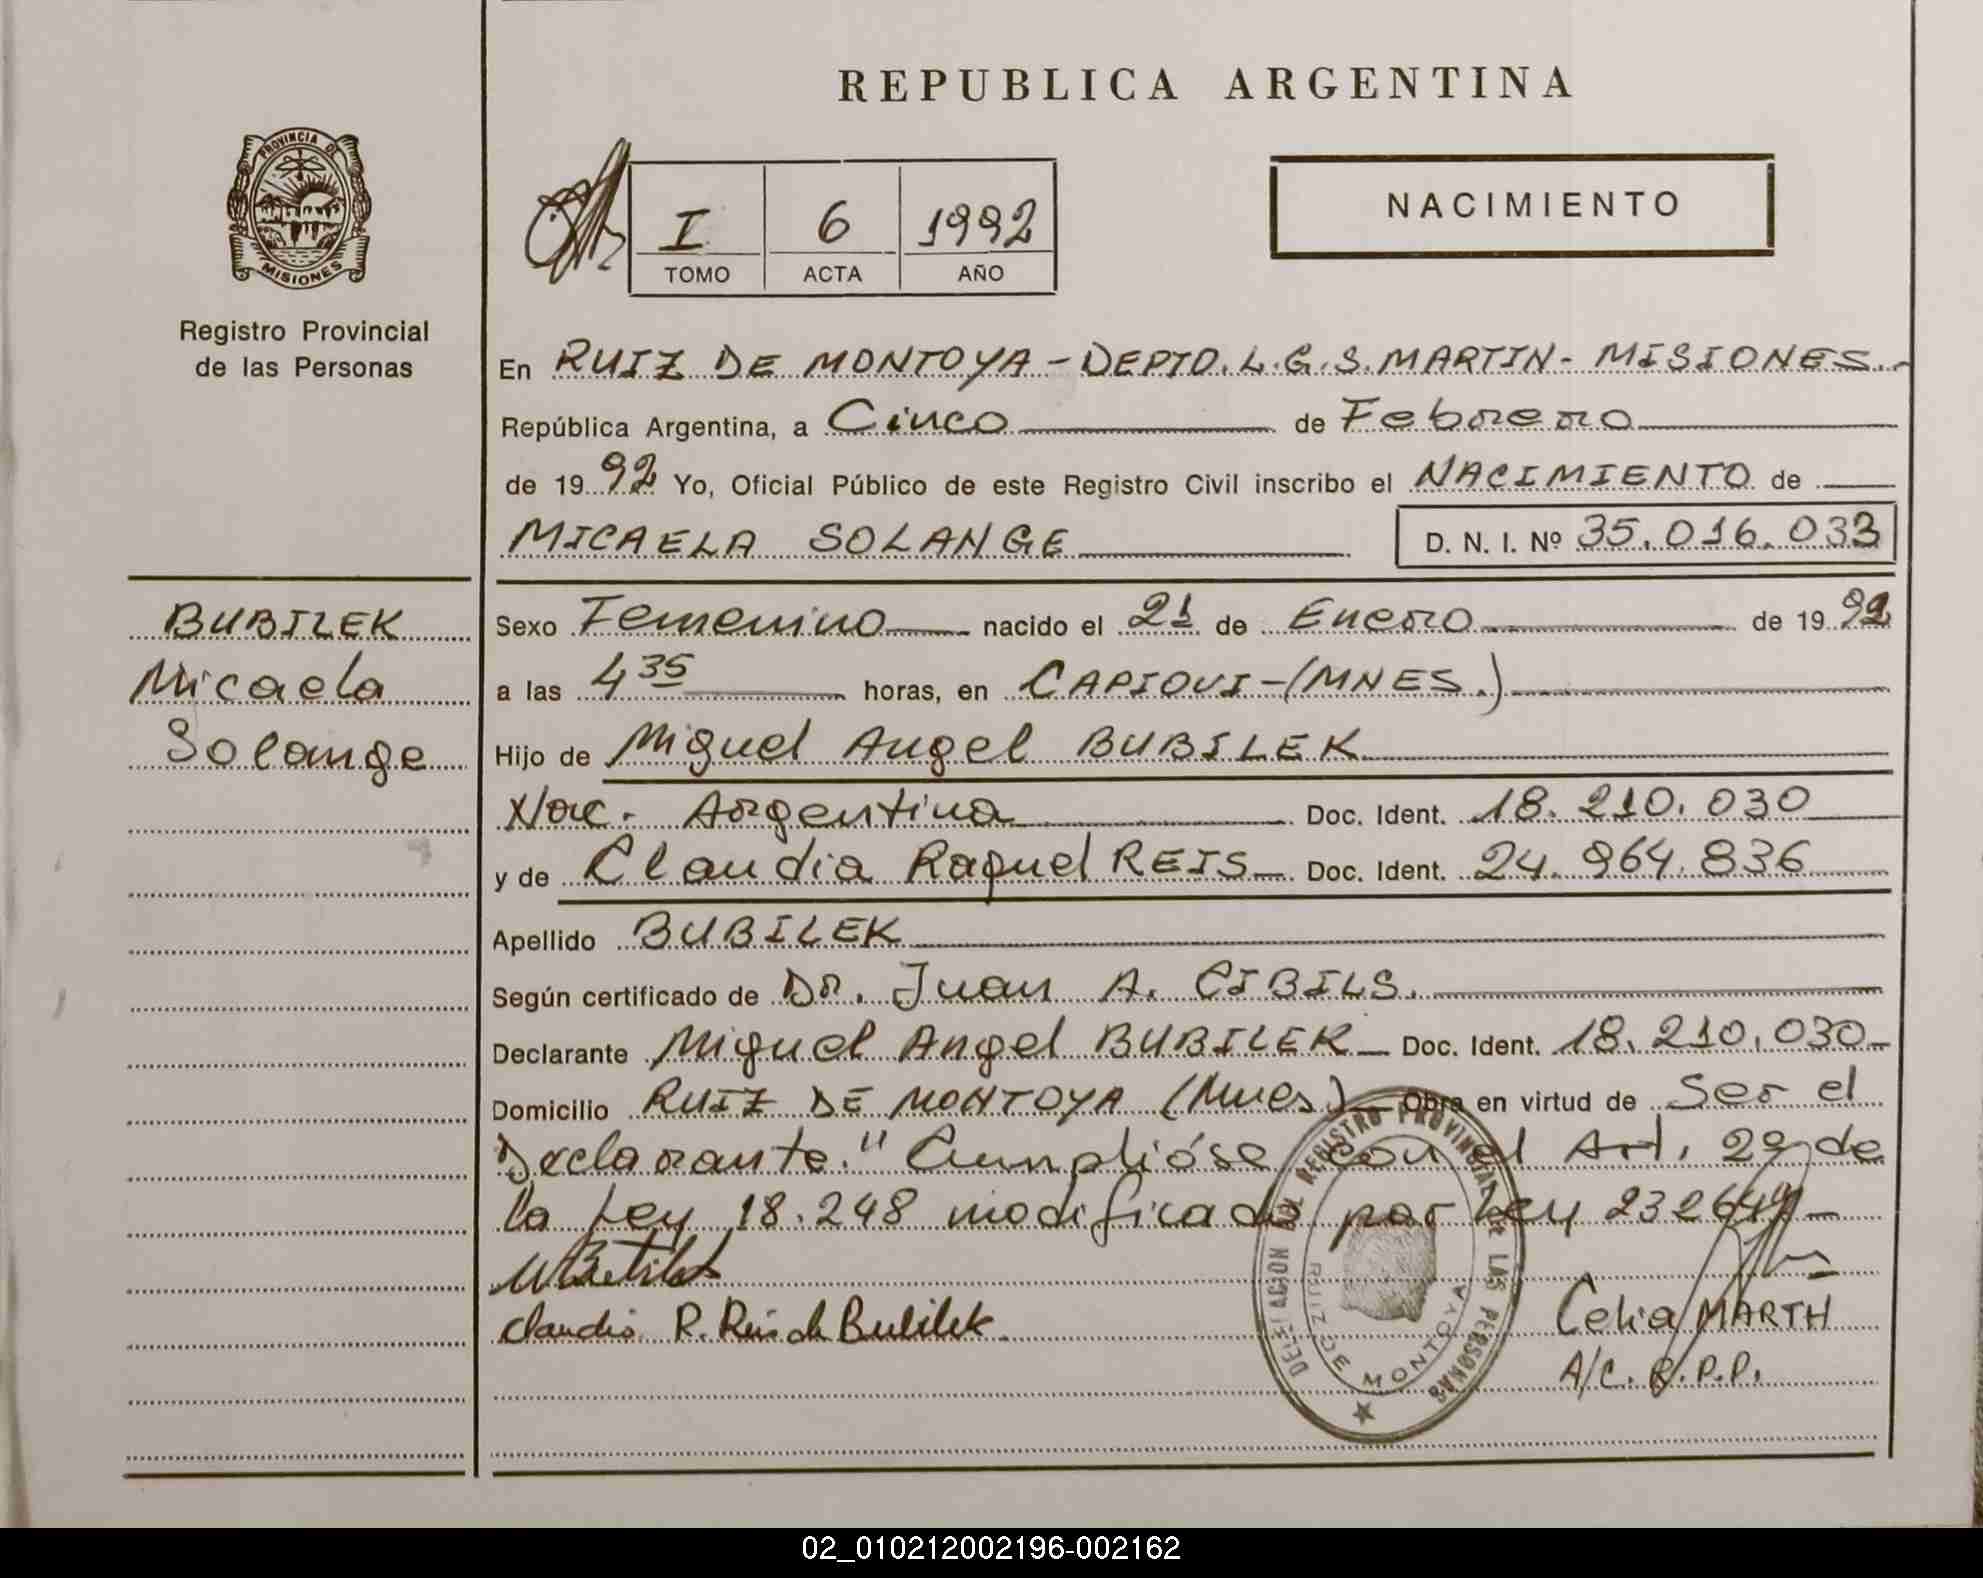 REPUBLICA ARGENTINA
PROVINCIA DE
MISIONES
Registro Provincial
de las Personas
I 6 1992
TOMO ACTA AÑO
NACIMIENTO
En RUIZ DE MONTOYA - DEPTO. L.G.S. MARTIN - MISIONES.-
República Argentina, a Cinco de Febrero
de 1992 Yo, Oficial Público de este Registro Civil inscribo el NACIMIENTO de
MICAELA SOLANGE D. N. I. Nº 35.016.033
BUBILEK
Micaela
Solange
Sexo Femenino nacido el 21 de Enero de 1992
a las 4 35 horas, en CAPIOVI-(MNES.)
Hijo de Miguel Angel BUBILEK
Nac. Argentina Doc. Ident. 18.210.030
y de Claudia Raquel REIS Doc. Ident. 24.964.836
Apellido BUBILEK
Según certificado de Dr. Juan A. CIBILS.
Declarante Miguel Angel BUBILEK Doc. Ident. 18.210.030
Domicilio RUIZ DE MONTOYA (Mnes) Obra en virtud de Ser el
Declarante." Cumplióse con el Art. 29 de
la Ley 18.248 modificada por Ley 23264
Claudia R. Reis de Bubilek
Celia MARTH
A/C. R.P.P.
DELEGACION DEL REGISTRO PROVINCIAL DE LAS PERSONAS
RUIZ DE MONTOYA
02_010212002196-002162